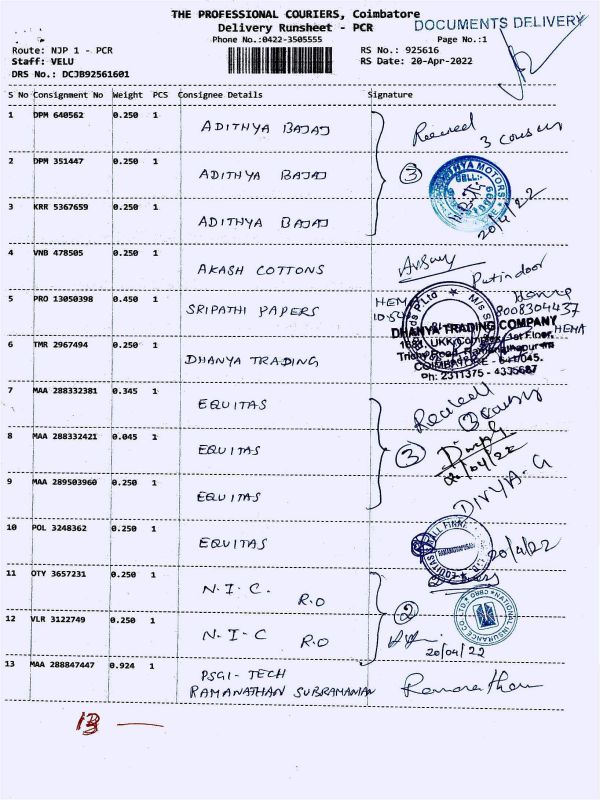 THE PROFESSIONAL COURIERS, Coimbatore
DOCUMENTS DELIVERY
Delivery Runsheet - PCR
Phone No.:0422-3505555
Page No.:1
Route: NJP 1 - PCR
RS No.: 925616
Staff: VELU
RS Date: 20-Apr-2022
DRS No.: DCJB92561601
S No Consignment No Weight PCS Consignee Details Signature
1 DPM 640562 0.250 1 ADITHYA BAJAJ
Received
2 DPM 351447 0.250 1 ADITHYA BAJAJ
3
3 KRR 5367659 0.250 1 ADITHYA BAJAJ
20/4/22
4 VNB 478505 0.250 1 AKASH COTTONS
5 PRO 13050398 0.450 1 SRIPATHI PAPERS
8008304437
HEMA
6 TMR 2967494 0.250 1 DHANYA TRADING
DHANYA TRADING COMPANY
COIMBATORE - 641045.
Ph: 2311375 - 4335687
7 MAA 288332381 0.345 1 EQUITAS
8 MAA 288332421 0.045 1 EQUITAS
3
20/04/22
9 MAA 289503960 0.250 1 EQUITAS
DIVYA-G
10 POL 3248362 0.250 1 EQUITAS
20/4/22
11 OTY 3657231 0.250 1 N.I.C. R.O
2
NATIONAL INSURANCE CO. LTD.
12 VLR 3122749 0.250 1 N-I-C R.O
20/04/22
13 MAA 288847447 0.924 1 PSGI-TECH
RAMANATHAN SUBRAMANIAN
Ramanathan
13